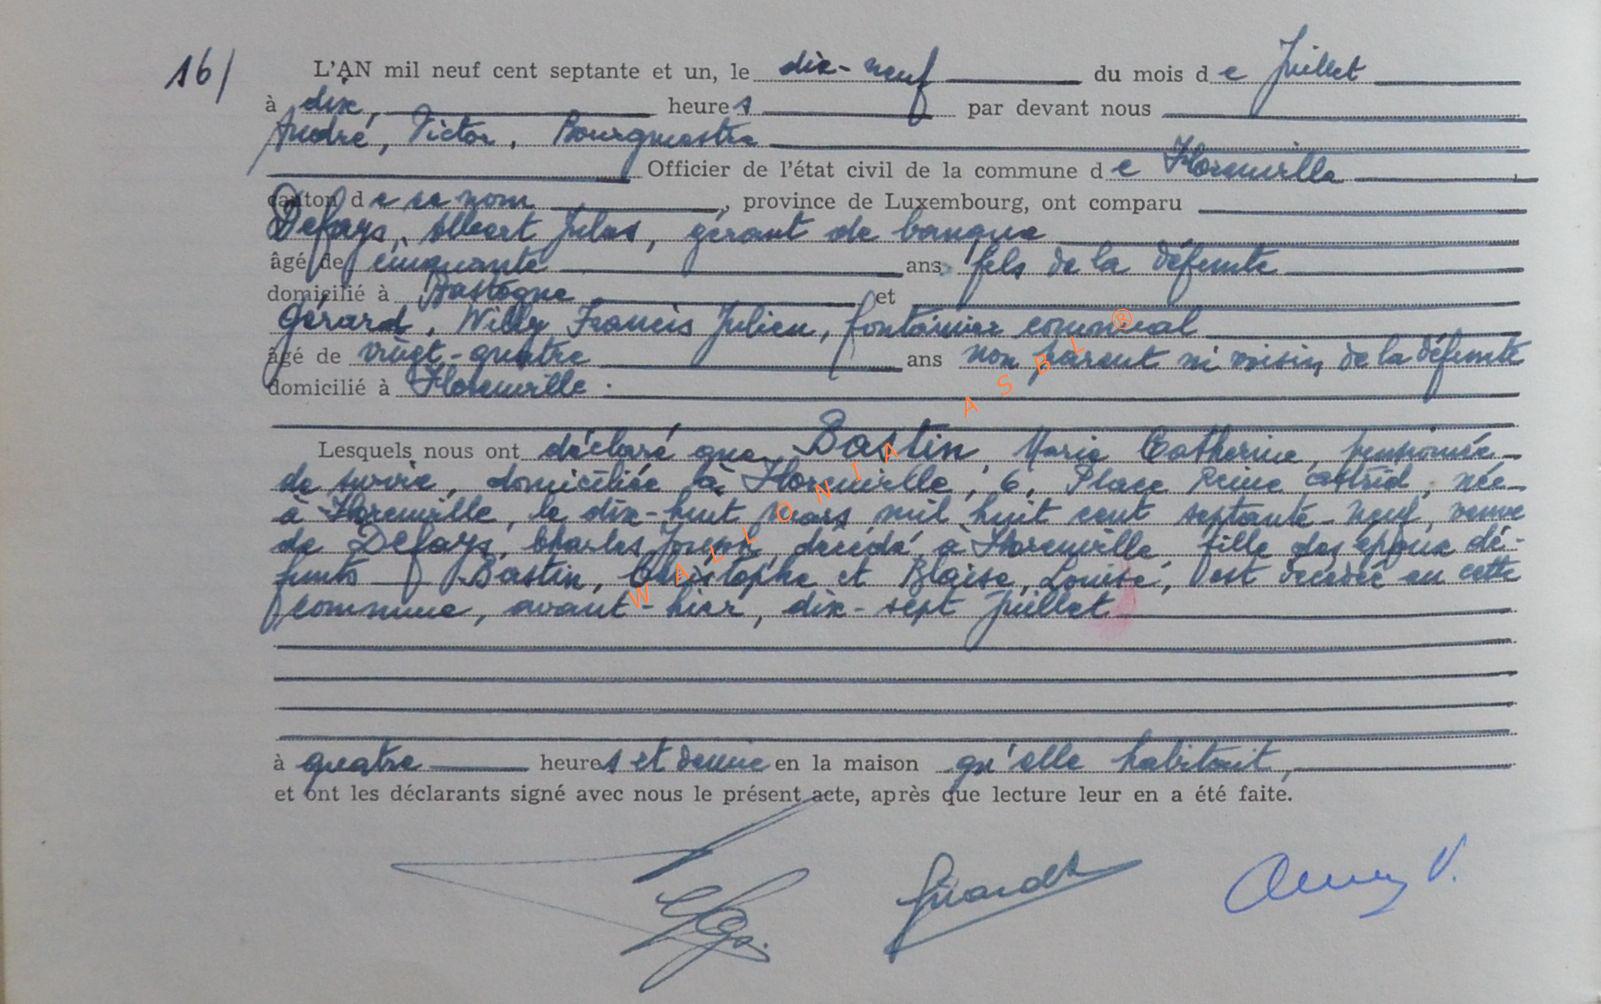 16/ L'AN mil neuf cent septante et un, le dix-neuf du mois de Juillet
à dix, heures par devant nous
André, Victor, Bourgmestre
Officier de l'état civil de la commune de Florenville
canton de ce nom, province de Luxembourg, ont comparu
Defays, Albert Jules, gérant de banque
âgé de cinquante ans fils de la défunte
domicilié à Bastogne et
Gérard, Willy Francis Julien, fontainier communal
âgé de vingt-quatre ans non parent ni voisin de la défunte
domicilié à Florenville.
Lesquels nous ont déclaré que Bastin, Marie Catherine, pensionnée
de survie, domiciliée à Florenville, 6, Place Reine Astrid, née
à Florenville, le dix-huit mars mil huit cent septante-neuf, veuve
de Defays, Charles Joseph, décédé à Florenville fille des époux dé-
funts Bastin, Christophe et Blaise, Louise, est décédée en cette
commune, avant-hier, dix-sept Juillet
à quatre heures et demie en la maison qu'elle habitait,
et ont les déclarants signé avec nous le présent acte, après que lecture leur en a été faite.
WALLONIA ASBL ®